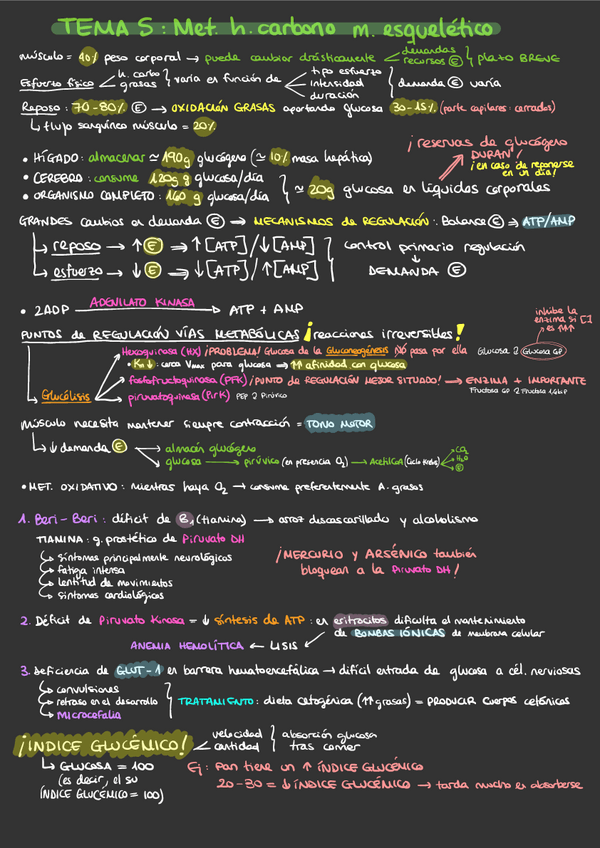 TEMA 5: Met. h. carbono m. esquelético
músculo = 40% peso corporal → puede cambiar drásticamente demandas recursos Ⓔ } plazo BREVE
Esfuerzo físico h. carbo grasas } varía en función de tipo esfuerzo intensidad duración } demanda Ⓔ varía
Reposo: 70-80% Ⓔ → OXIDACIÓN GRASAS aportando glucosa 30-15% (parte capilares cerrados)
↳ flujo sanguíneo músculo = 20%
• HÍGADO: almacenar ≃ 190g glucógeno (≃ 10% masa hepática)
• CEREBRO: consume 120g g glucosa/día
• ORGANISMO COMPLETO: 160 g glucosa/día } ≃ 20g glucosa en líquidos corporales
¡reservas de glucógeno DURAN! ¡en caso de reponerse en un día!
GRANDES cambios en demanda Ⓔ → MECANISMOS de REGULACIÓN: Balance Ⓔ ⇒ ATP/AMP
↳ reposo → ↑ Ⓔ ⇒ ↑[ATP]/↓[AMP]
↳ esfuerzo → ↓ Ⓔ ⇒ ↓[ATP]/↑[AMP] } control primario regulación ↓ DEMANDA Ⓔ
• 2ADP ADENILATO KINASA → ATP + AMP
PUNTOS de REGULACIÓN VÍAS METABÓLICAS ¡reacciones irreversibles!
inhibe la enzima si [] es ↑↑↑
↳ Glucólisis
Hexoquinasa (HX) ¡PROBLEMA! Glucosa de la Gluconeogénesis NO pasa por ella Glucosa 2 Glucosa 6P
• Km ↓: cerca Vmax para glucosa ⇒ ↑↑ afinidad con glucosa
fosfofructoquinasa (PFK) ¡PUNTO DE REGULACIÓN MEJOR SITUADO! → ENZIMA + IMPORTANTE
Fructosa 6P 2 Fructosa 1,6biP
piruvatoquinasa (PirK) PEP 2 Pirúvico
Músculo necesita mantener siempre contracción = TONO MOTOR
↳ ↓ demanda Ⓔ → almacén glucógeno
glucosa → pirúvico (en presencia O₂) → AcetilCoA (Ciclo Krebs) CO₂ H₂O Ⓔ
• MET. OXIDATIVO: mientras haya O₂ → consume preferentemente A. grasos
1. Beri-Beri: déficit de B₁ (tiamina) → arroz descascarillado y alcoholismo
TIAMINA: g. prostético de Piruvato DH
↳ síntomas principalmente neurológicos
↳ fatiga intensa
↳ lentitud de movimientos
↳ síntomas cardiológicos
¡MERCURIO y ARSÉNICO también bloquean a la Piruvato DH!
2. Déficit de Piruvato Kinasa = ↓ síntesis de ATP: en eritrocitos dificulta el mantenimiento
de BOMBAS IÓNICAS de membrana celular
ANEMIA HEMOLÍTICA ← LISIS
3. Deficiencia de GLUT-1 en barrera hematoencefálica → difícil entrada de glucosa a cél. nerviosas
↳ convulsiones
↳ retraso en el desarrollo
↳ microcefalia
TRATAMIENTO: dieta cetogénica (↑↑ grasas) = PRODUCIR cuerpos cetónicos
¡ÍNDICE GLUCÉMICO! velocidad cantidad } absorción glucosa tras comer
↳ GLUCOSA = 100
(es decir, el su
ÍNDICE GLUCÉMICO = 100)
Ej: Pan tiene un ↑ ÍNDICE GLUCÉMICO
20-30 = ↓ ÍNDICE GLUCÉMICO → tarda mucho en absorberse